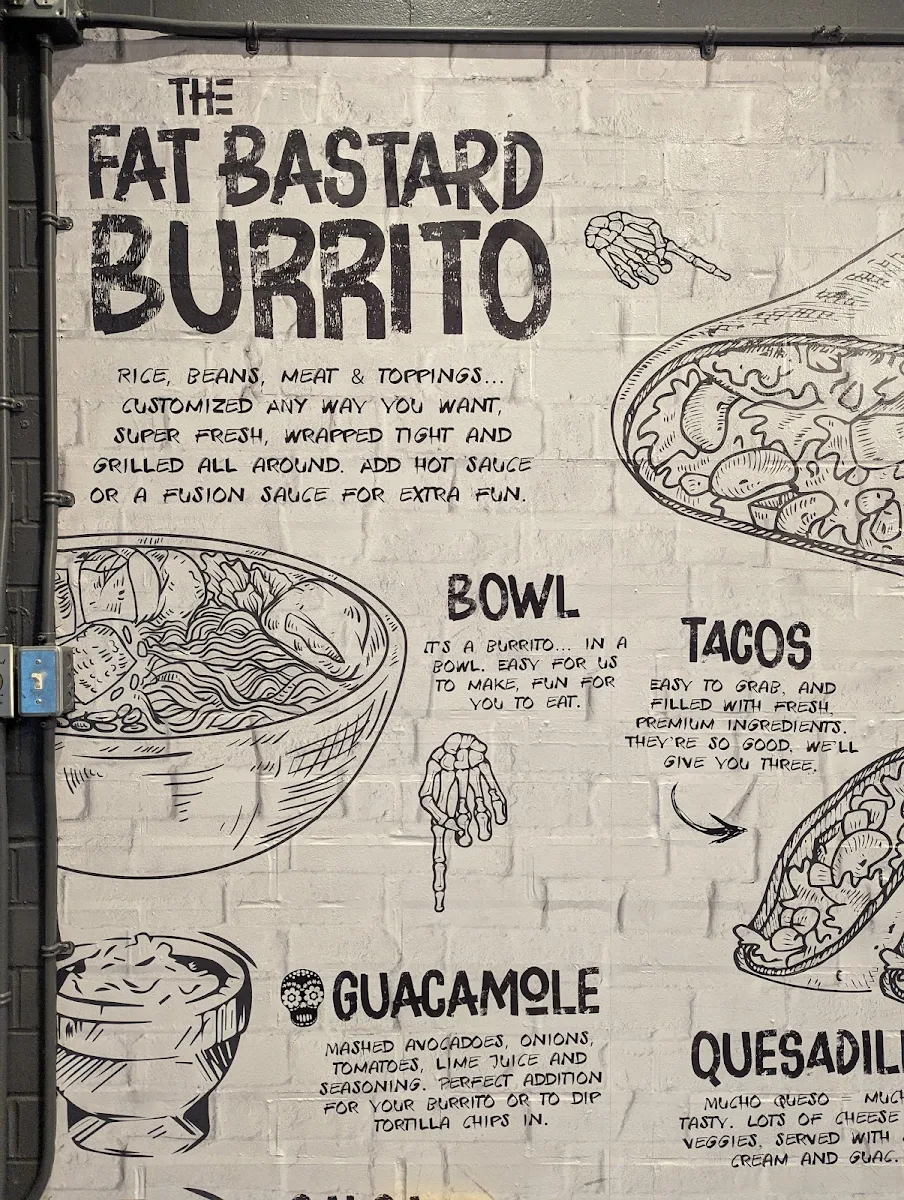 THE
FAT BASTARD
BURRITO
RICE, BEANS, MEAT & TOPPINGS...
CUSTOMIZED ANY WAY YOU WANT,
SUPER FRESH, WRAPPED TIGHT AND
GRILLED ALL AROUND. ADD HOT SAUCE
OR A FUSION SAUCE FOR EXTRA FUN.
BOWL
IT'S A BURRITO... IN A
BOWL. EASY FOR US
TO MAKE, FUN FOR
YOU TO EAT.
TACOS
EASY TO GRAB, AND
FILLED WITH FRESH,
PREMIUM INGREDIENTS.
THEY'RE SO GOOD, WE'LL
GIVE YOU THREE.
GUACAMOLE
MASHED AVOCADOES, ONIONS,
TOMATOES, LIME JUICE AND
SEASONING. PERFECT ADDITION
FOR YOUR BURRITO OR TO DIP
TORTILLA CHIPS IN.
QUESADILL
MUCHO QUESO = MUCH
TASTY. LOTS OF CHEESE
VEGGIES, SERVED WITH
CREAM AND GUAC.